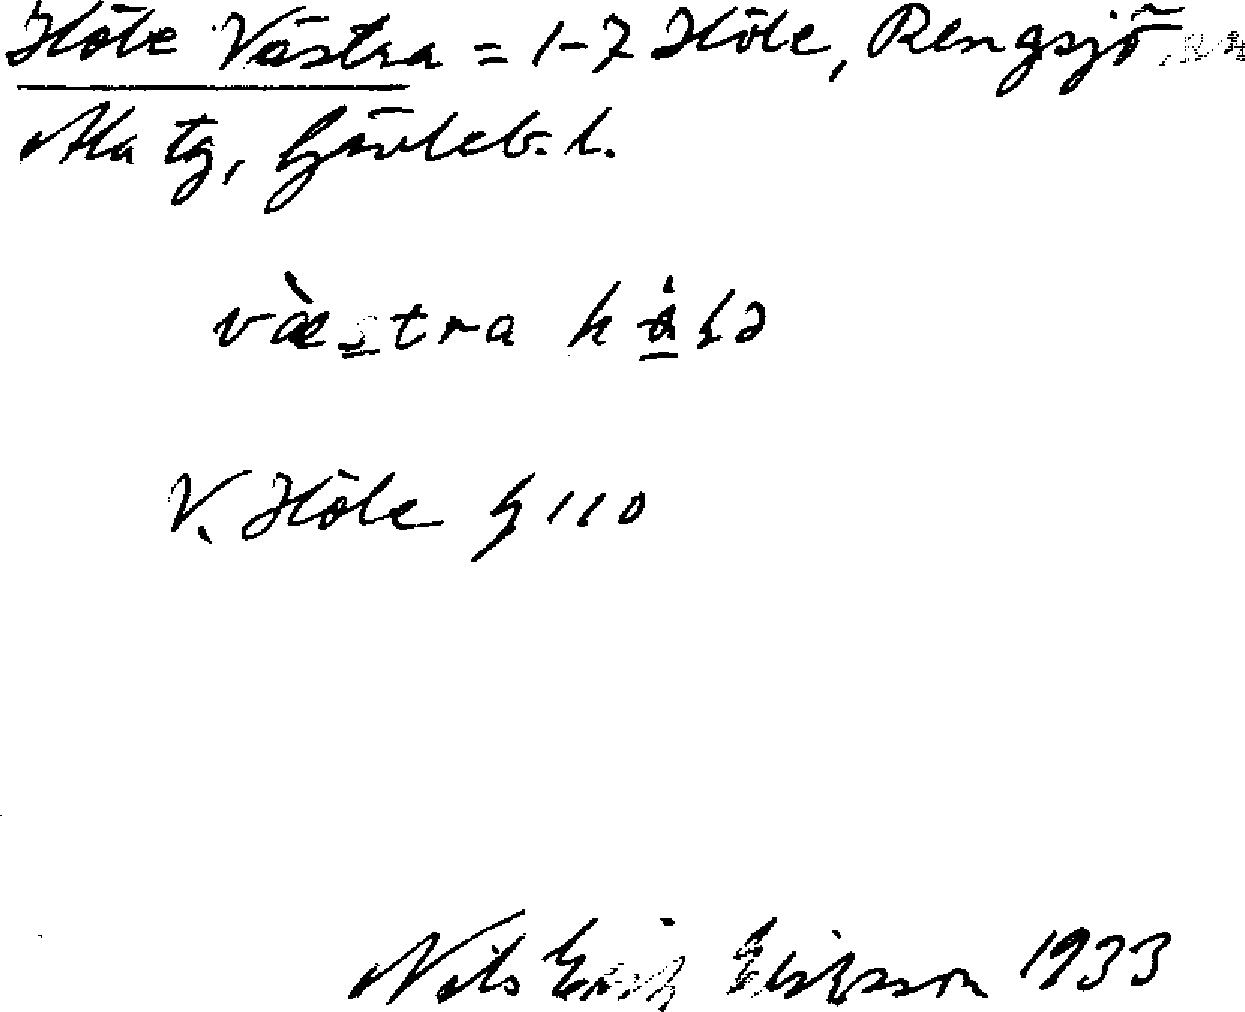 Höle Västra = 1-7 Höle, Rengsjö
Ala tg, Gävleb. l.
væstra
V. Höle G 110
Nils Erik Eriksson 1933